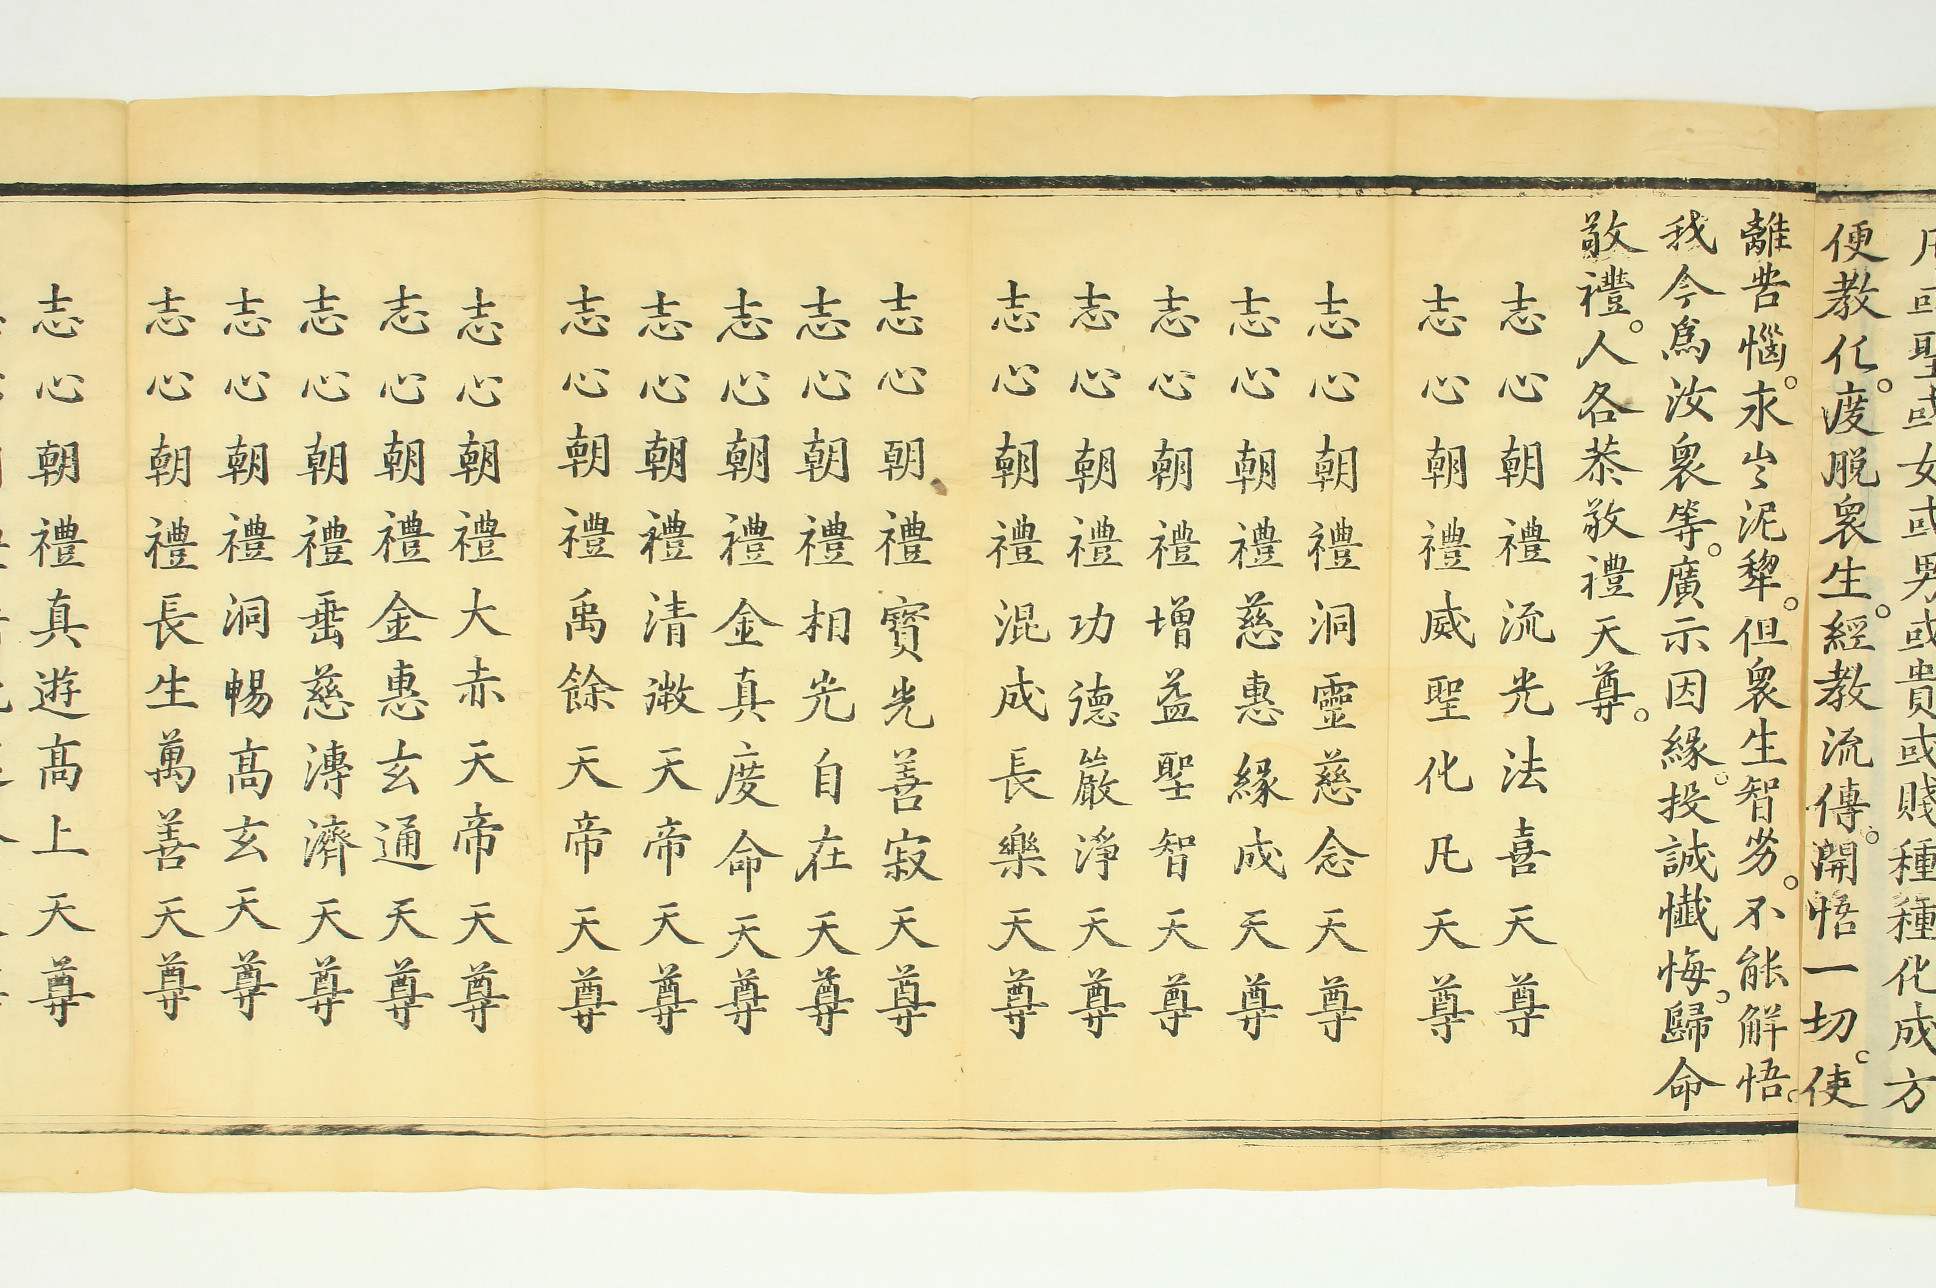 或聖或女或男或貴或賤種種化成方
便教化。度脫衆生。經教流傳。開悟一切。使
離苦惱。永出泥犂。但衆生智劣。不能解悟。
我今爲汝衆等。廣示因緣。投誠懺悔。歸命
敬禮。人各恭敬禮天尊。
志心朝禮流光法喜天尊
志心朝禮威聖化凡天尊
志心朝禮洞靈慈念天尊
志心朝禮慈惠緣成天尊
志心朝禮增益聖智天尊
志心朝禮功德嚴淨天尊
志心朝禮混成長樂天尊
志心朝禮寶光善寂天尊
志心朝禮相光自在天尊
志心朝禮金真度命天尊
志心朝禮清微天帝天尊
志心朝禮禹餘天帝天尊
志心朝禮大赤天帝天尊
志心朝禮金惠玄通天尊
志心朝禮垂慈溥濟天尊
志心朝禮洞暢高玄天尊
志心朝禮長生萬善天尊
志心朝禮真遊高上天尊